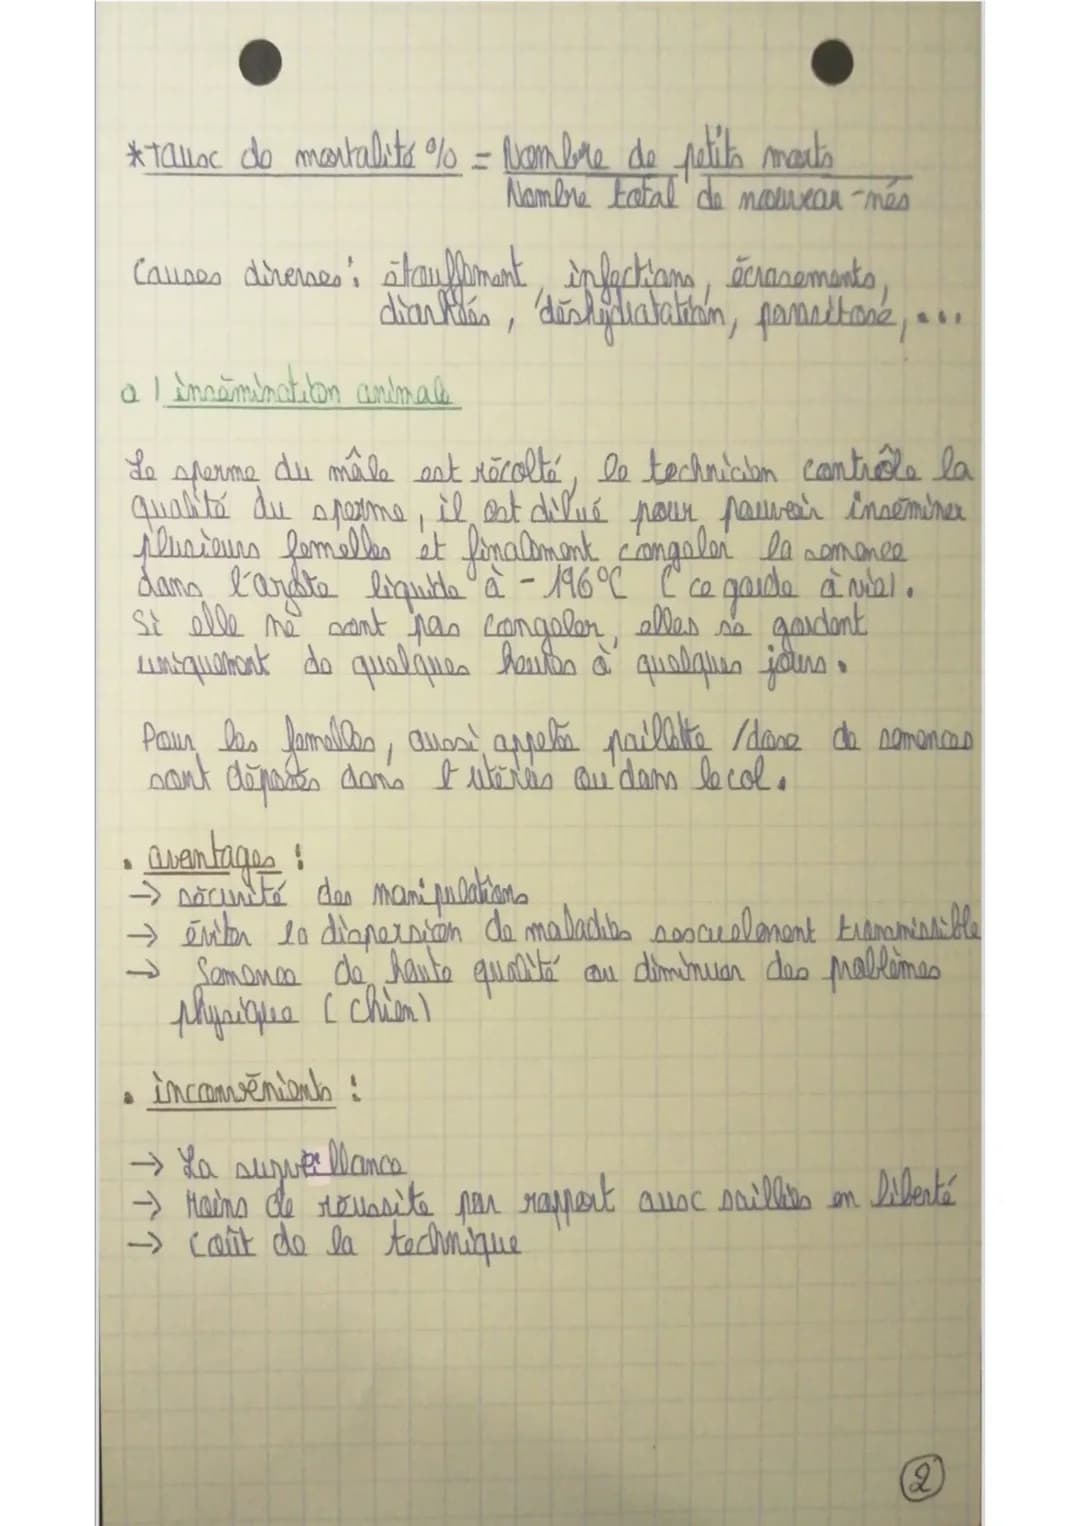 *taux de mortalité % = Nombre de petits morts
Nombre total de nouveau-nés
Causes diverses : étouffement, infections, écrasements,
diarhées, déshydratation, parasitose, ...
a l insémination animale
Le sperme du mâle est récolté, le technicien contrôle la
qualité du sperme, il est dilué pour pouvoir inséminer
plusieurs femelles et finalement congeler la semence
dans l'azote liquide à - 196°C ( ce garde à vie).
Si elle ne sont pas congeler, elles se gardent
uniquement de quelques heures à quelques jours.
Pour les femelles, aussi appelée paillette / dose de semences
sont déposés dans l utérus ou dans le col.
• aventages :
→ sécurité des manipulations
→ éviter la dispersion de maladies sexuelement transmissible
→ Semence de haute qualité ou diminuer des problèmes
physique ( chien)
• inconvénients :
→ La surveillance
→ Moins de réussite par rapport aux saillies en liberté
→ coût de la technique
2